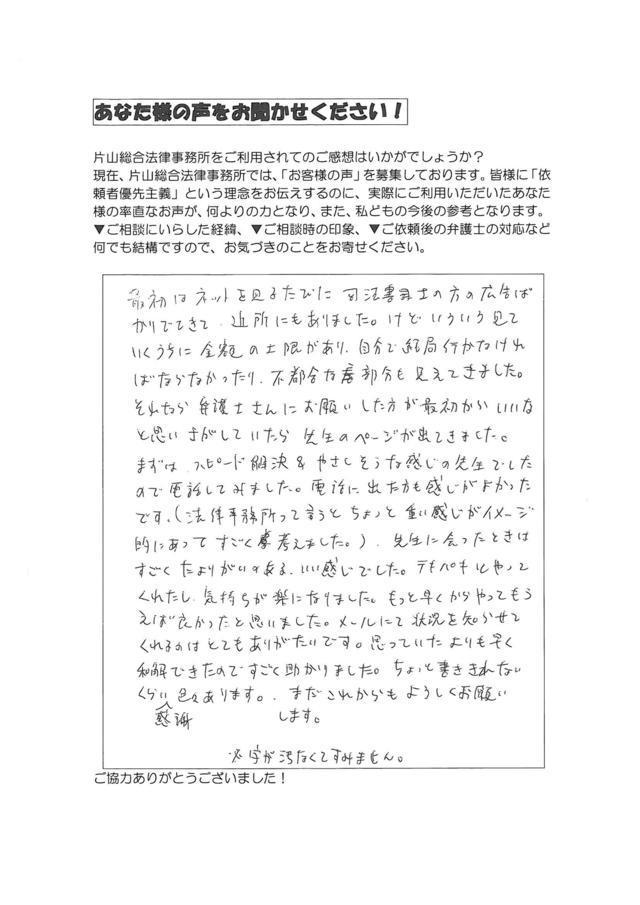 あなた様の声をお聞かせください！
片山総合法律事務所をご利用されてのご感想はいかがでしょうか？
現在、片山総合法律事務所では、「お客様の声」を募集しております。皆様に「依
頼者優先主義」という理念をお伝えするのに、実際にご利用いただいたあなた
様の率直なお声が、何よりの力となり、また、私どもの今後の参考となります。
▼ご相談にいらした経緯、▼ご相談時の印象、▼ご依頼後の弁護士の対応など
何でも結構ですので、お気づきのことをお寄せください。
最初はネットを見るたびに司法書士の方の広告ば
かりでてきて、近所にもありました。けどいろいろ見て
いくうちに金額の上限があり、自分で結局行かなけれ
ばならなかったり、不都合な部分も見えてきました。
それなら弁護士さんにお願いした方が最初からいいな
と思いさがしていたら先生のページが出てきました。
まずは、スピード解決&やさしそうな感じの先生でした
ので電話してみました。電話に出た方も感じがよかった
です。(法律事務所って言うとちょっと重い感じがイメージ
的にあってすごく考えました。)先生に会ったときは
すごくたよりがいのある、いい感じでした。テキパキとやって
くれたし、気持ちが楽になりました。もっと早くからやってもら
えば良かったと思いました。メールにて状況を知らせて
くれるのはとてもありがたいです。思っていたよりも早く
和解できたのですごく助かりました。ちょっと書ききれない
くらい色々あります。まだこれからもよろしくお願い
感謝
します。
※字が汚なくてすみません。
ご協力ありがとうございました！